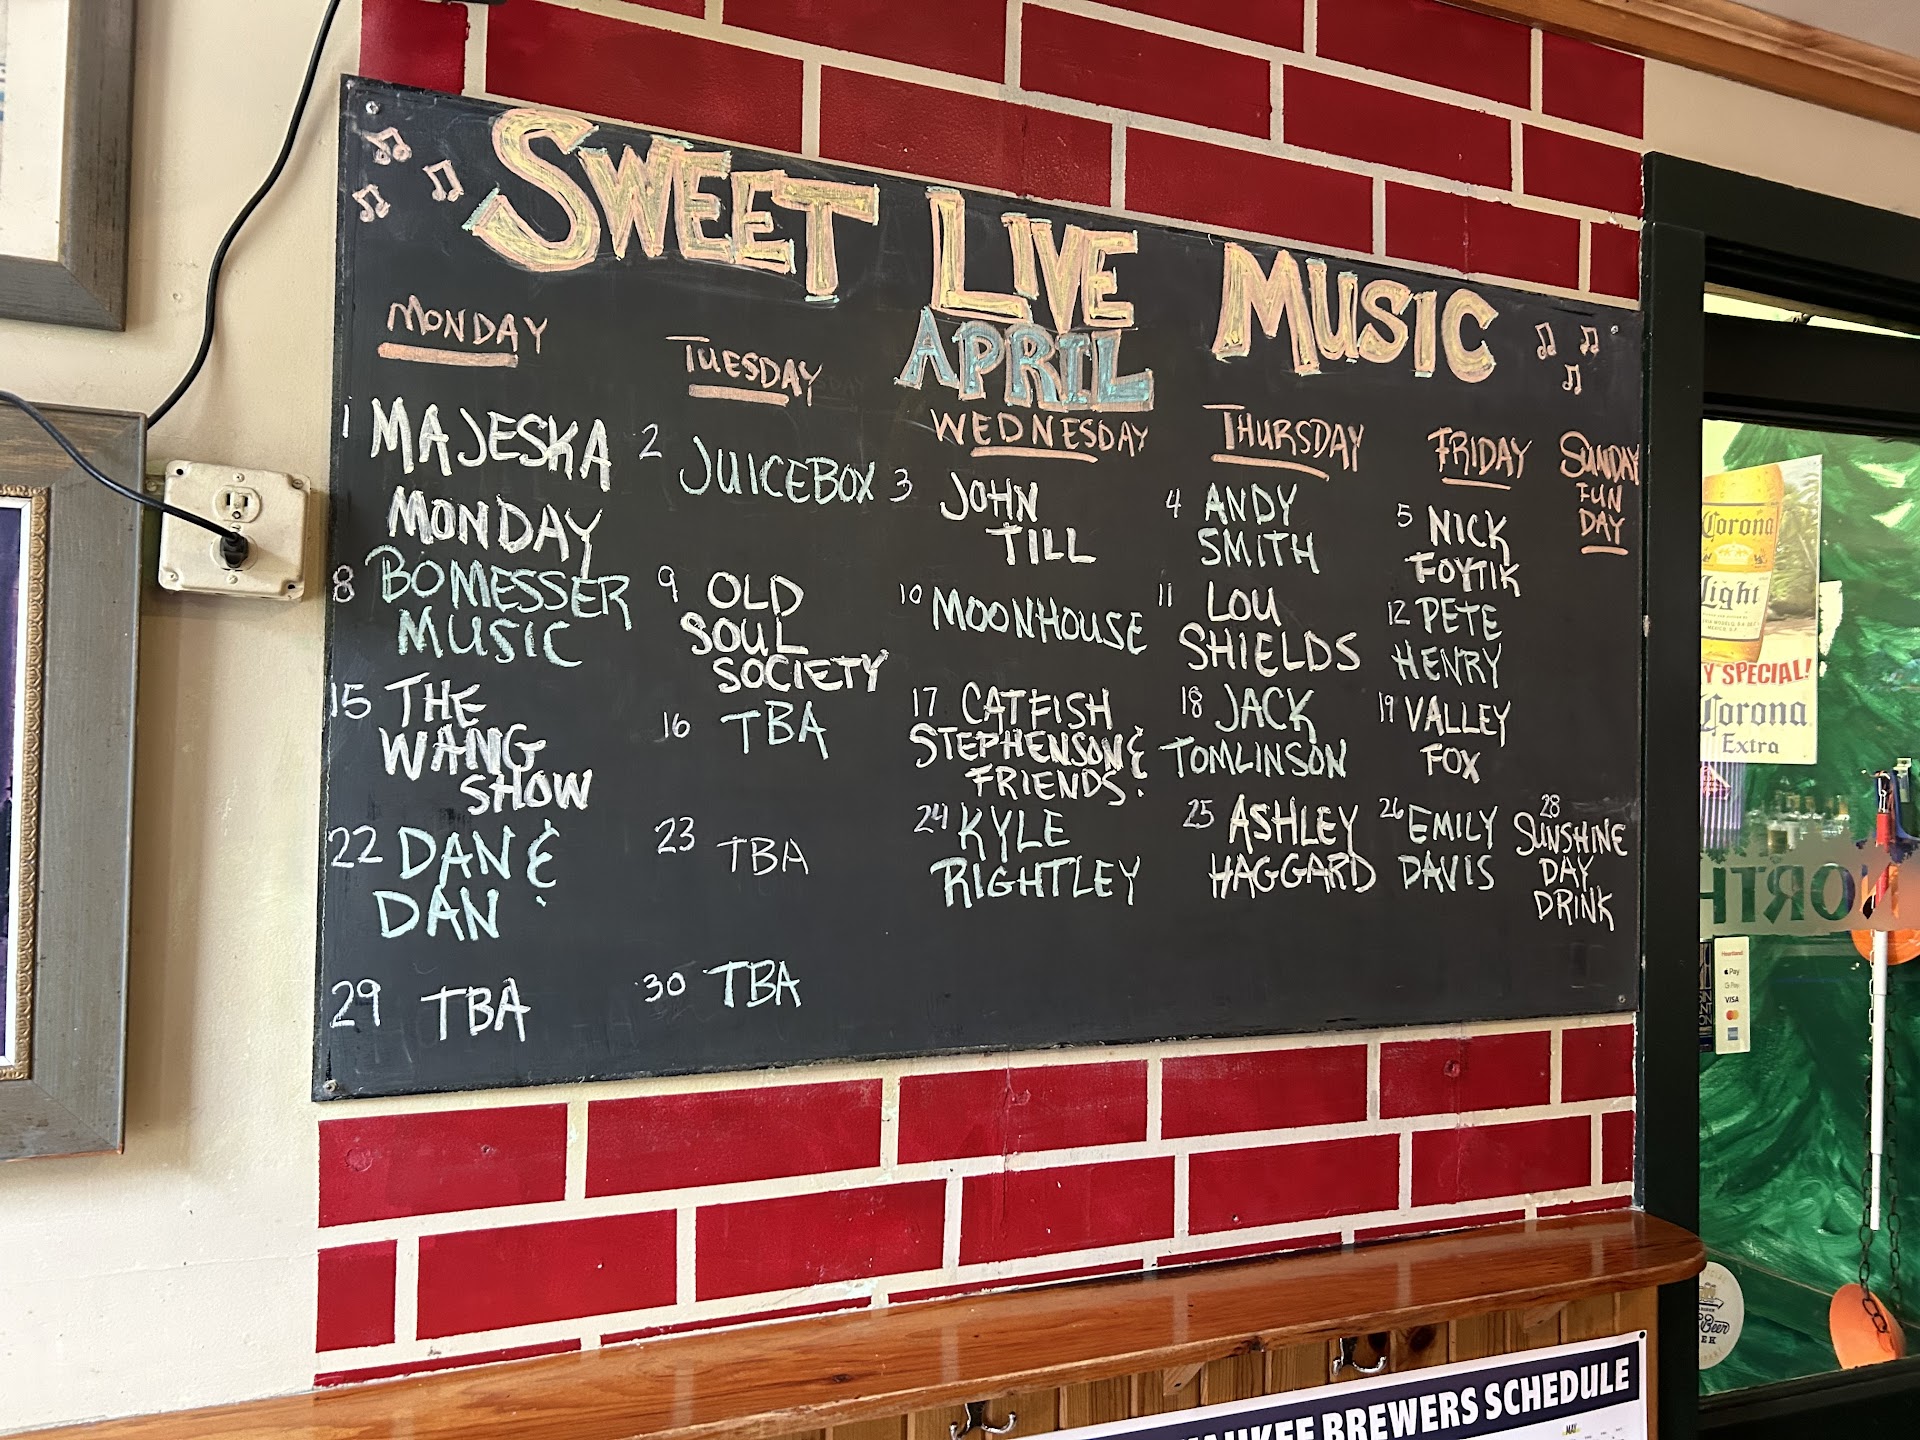 SWEET LIVE MUSIC
APRIL
MONDAY
TUESDAY
WEDNESDAY
THURSDAY
FRIDAY
SUNDAY
FUN
DAY
1 MAJESKA
MONDAY
2 JUICEBOX
3 JOHN
TILL
4 ANDY
SMITH
5 NICK
FOYTIK
8 BOMESSER
MUSIC
9 OLD
SOUL
SOCIETY
10 MOONHOUSE
11 LOU
SHIELDS
12 PETE
HENRY
15 THE
WANG
SHOW
16 TBA
17 CATFISH
STEPHENSON &
FRIENDS.
18 JACK
TOMLINSON
19 VALLEY
FOX
22 DAN &
DAN
23 TBA
24 KYLE
RIGHTLEY
25 ASHLEY
HAGGARD
26 EMILY
DAVIS
28
SUNSHINE
DAY
DRINK
29 TBA
30 TBA
Corona
Light
Y SPECIAL!
Corona
Extra
NORTH
Heartland
Pay
G Pay
VISA
Beer
BREWERS SCHEDULE
MAY